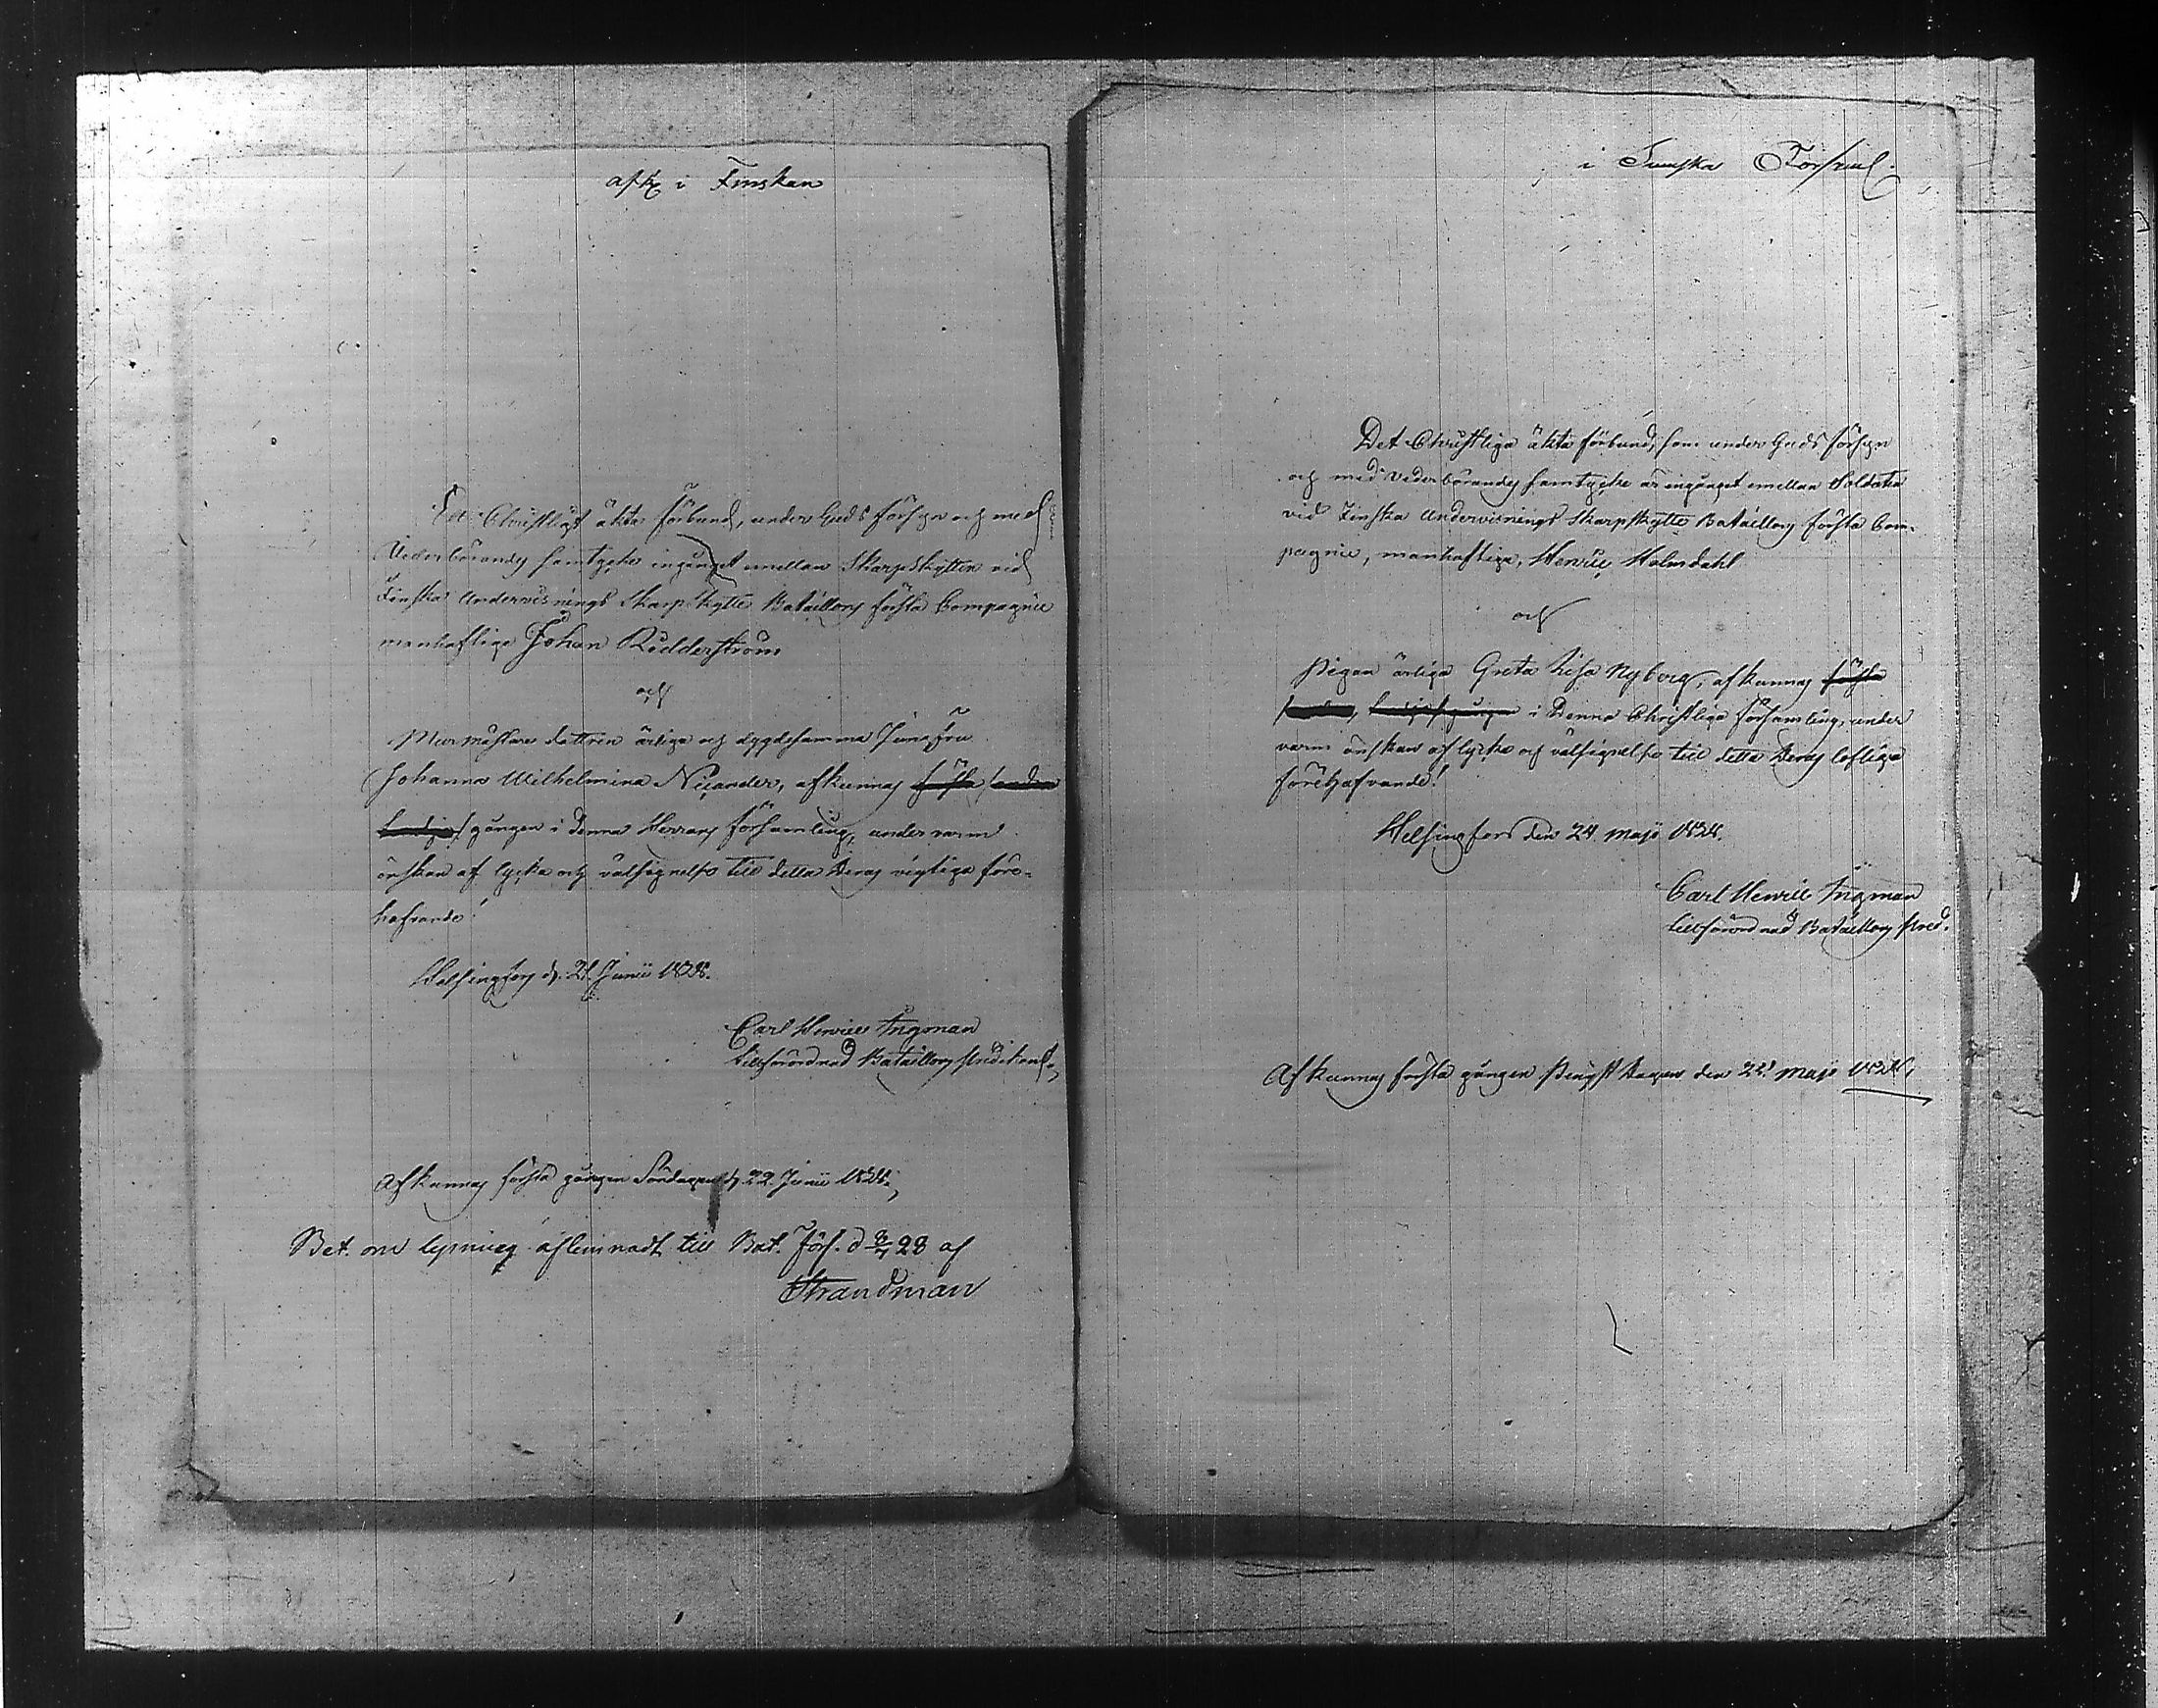 afk i Finskan
Ett Christligt äkta förbund, under Guds försyn och med
Vederbörandes samtycke ingånget emellan Skarpskytten vid
Finska Undervisnings Skarpskytte Bataillons första Compagnie
manhaftige Johan Rödderström
och
Murmästare dottren ärliga och dygdesamma Jungfru
Johanna Wilhelmina Nicander, afkunnas första andra
tredje gången i denna Herrans församling, under varm
önskan af lycka och välsignelse till detta Deras vigtiga före-
hafvande!
Helsingfors d. 21. Junii 1828.
Carl Henric Ingman
tillförordnad Bataillons Predikant.
Afkunnas första gången Söndagen d. 22. Junii 1828.
Bet. om lysning aflemnadt till Bat. Förs. d 28 af
Strandman
i Svenska Församl.
Det Christliga äkta förbund, som under Guds försyn
och med Vederbörandes samtycke är ingånget emellan Soldaten
vid Finska Undervisnings Skarpskytte Bataillons första Com-
pagnie, manhaftige, Henric Holmdahl
och
Pigan ärliga Greta Lisa Nyberg, afkunnas första
andra, tredje gången i Denna Christliga församling, under
varm önskan af lycka och välsignelse till detta Deras lofliga
företagande!
Helsingfors den 24 Maji 1828.
Carl Henric Ingman
tillförordnad Bataillons Pred.
Afkunnas första gången Pingst Dagen den 25 Maji 1828.